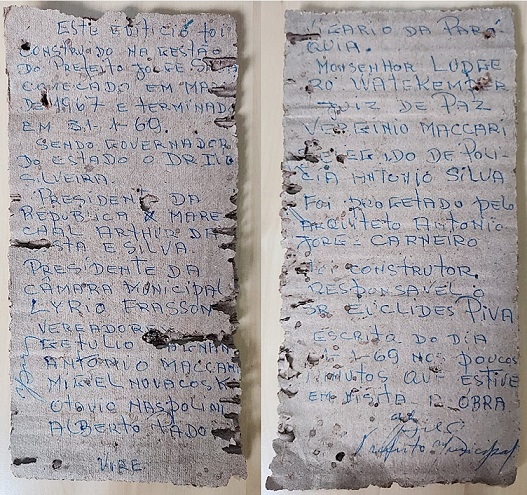 ESTE EDIFICIO foi
CONSTRUIDO NA GESTÃO
DO PREFEITO JORGE
COMEÇADO EM
DE 1967 E TERMINADO
EM 31-1-69.
SENDO GOVERNADOR
DO ESTADO O DR IVO
SILVEIRA.
PRESIDENTE DA
REPÚBLICA MARE
CHAL ARTHUR DA
COSTA E SILVA
PRESIDENTE DA
CÂMARA MUNICIPAL
LYRIO
VEREADORES
GETULIO
ANTONIO MACCARI
NOVACOSK
OTÁVIO NASPOLINI
ALBERTO
VIRE
VIGARIO DA PARÓ
QUIA.
MONSENHOR LUDGE
RO WATEKEMPER
JUIZ DE PAZ
VERGINIO MACCARI
DE POLI
CIA ANTONIO SILVA
FOI PROGETADO PELO
ARQUITETO ANTONIO
JORGE CARNEIRO
FOI CONSTRUTOR
RESPONSAVEL O
SR EUCLIDES PIVA
ESCRITA DO DIA
1-69 NOS POUCOS
MINUTOS QUE ESTIVE
EM VISITA A OBRA
Prefeito Municipal